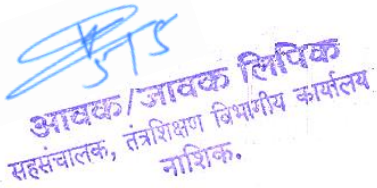 5/5
आवक/जावक लिपिक
सहसंचालक, तंत्रशिक्षण विभागीय कार्यालय
नाशिक.